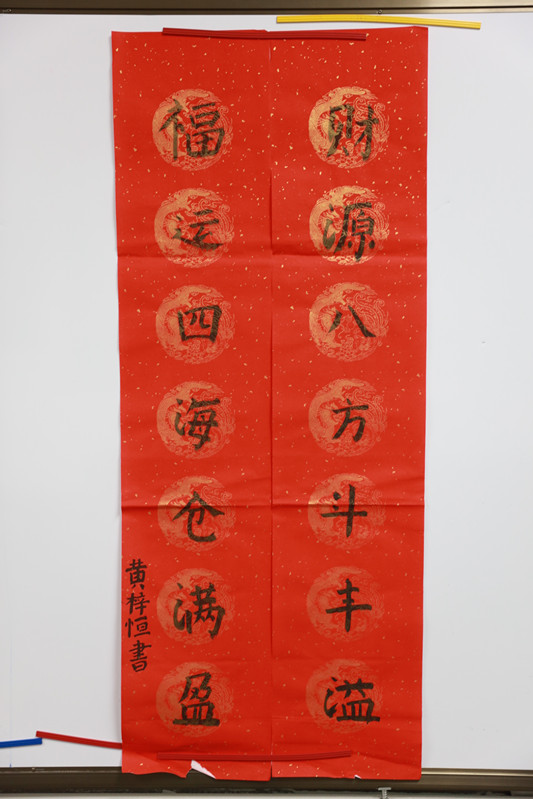 财源八方斗丰溢
福运四海仓满盈
黄梓恒書